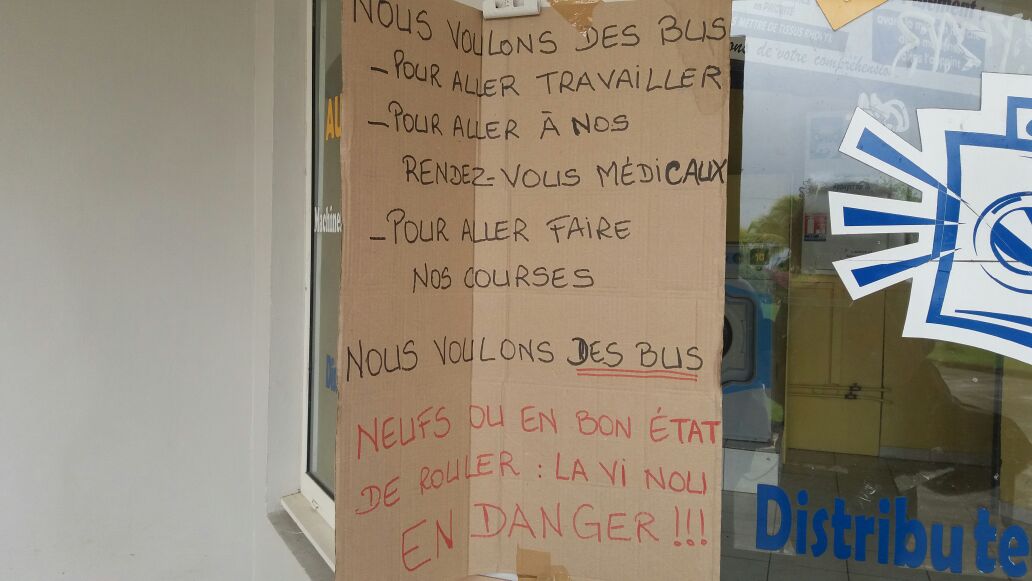 NOUS VOULONS DES BUS
- POUR ALLER TRAVAILLER
- POUR ALLER À NOS
RENDEZ-VOUS MÉDICAUX
- POUR ALLER FAIRE
NOS COURSES
NOUS VOULONS DES BUS
NEUFS OU EN BON ÉTAT
DE ROULER : LA VI NOU
EN DANGER !!!
AU
Machine
Di
de votre compréhension
Distribute